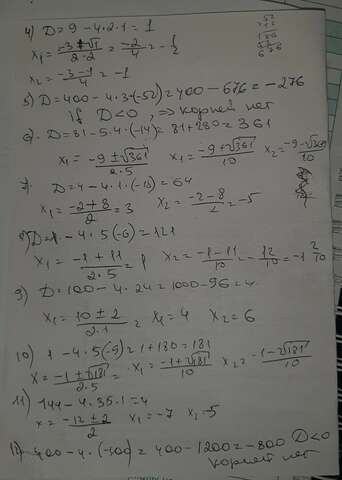 4) D = 9 - 4·2·1 = 1
x₁ = (-3+√1)/(2·2) = -2/4 = -1/2
x₂ = (-3-1)/4 = -1
5) D = 400 - 4·3·(-52) = 400 - 676 = -276
If D<0, ⇒ корней нет
6. D = 81 - 5·4·(-14) = 81 + 280 = 361
x₁ = (-9±√361)/(2·5) x₁ = (-9+√361)/10 x₂ = (-9-√361)/10
7. D = 4 - 4·1·(-15) = 64
x₁ = (-2+8)/2 = 3 x₂ = (-2-8)/2 = -5
8) D = 1 - 4·5(-6) = 121
x₁ = (-1+11)/(2·5) = 1 x₂ = (-1-11)/10 = -12/10 = -1 2/10
9) D = 100 - 4·24 = 1000 - 96 = 4
x₁ = (10±2)/(2·1) x₁ = 4 x₂ = 6
10) 1 - 4·5(-5) = 1 + 180 = 181
x = (-1±√181)/(2·5) = x₁ = (-1+√181)/10 x₂ = (-1-√181)/10
11) 144 - 4·35·1 = 4
x = (-12±2)/2 x₁ = -7 x₂ -5
12) 400 - 4·(-300) = 400 - 1200 = -800 D<0
корней нет